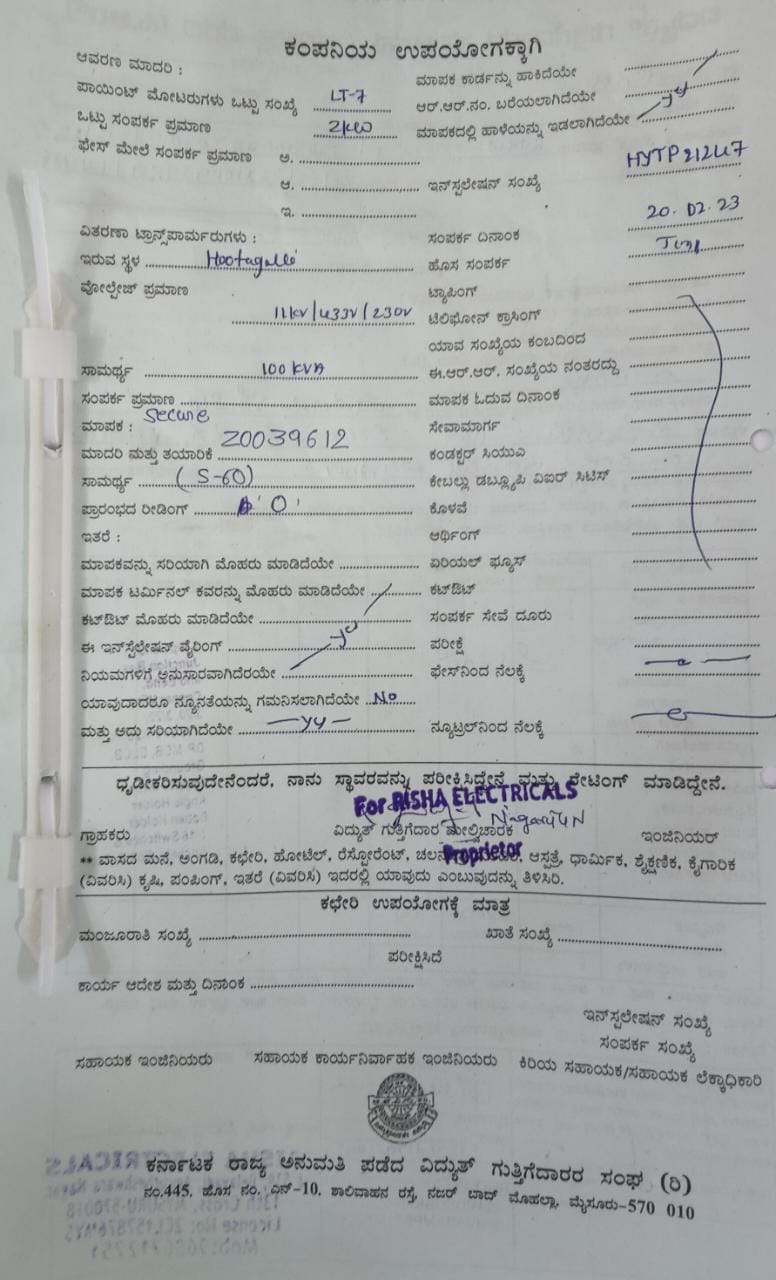 ಕಂಪನಿಯ ಉಪಯೋಗಕ್ಕಾಗಿ
ಆವರಣ ಮಾದರಿ : ಮಾಪಕ ಕಾರ್ಡನ್ನು ಹಾಕಿದೆಯೇ
ಪಾಯಿಂಟ್ ಮೋಟರುಗಳು ಒಟ್ಟು ಸಂಖ್ಯೆ LT-7 ಆರ್.ಆರ್.ನಂ. ಬರೆಯಲಾಗಿದೆಯೇ
ಒಟ್ಟು ಸಂಪರ್ಕ ಪ್ರಮಾಣ 2KW ಮಾಪಕದಲ್ಲಿ ಹಾಳೆಯನ್ನು ಇಡಲಾಗಿದೆಯೇ
ಫೇಸ್ ಮೇಲೆ ಸಂಪರ್ಕ ಪ್ರಮಾಣ ಅ.
ಆ. ಇನ್‌ಸ್ಪಲೇಷನ್ ಸಂಖ್ಯೆ HYTP21247
ಇ.
ವಿತರಣಾ ಟ್ರಾನ್ಸ್‌ಪಾರ್ಮರುಗಳು : ಸಂಪರ್ಕ ದಿನಾಂಕ 20.02.23
ಇರುವ ಸ್ಥಳ Hootagalli ಹೊಸ ಸಂಪರ್ಕ
ವೋಲ್ಟೇಜ್ ಪ್ರಮಾಣ ಟ್ಯಾಪಿಂಗ್
11KV/433V/230V ಟೆಲಿಫೋನ್ ಕ್ರಾಸಿಂಗ್
ಯಾವ ಸಂಖ್ಯೆಯ ಕಂಬದಿಂದ
ಸಾಮರ್ಥ್ಯ 100 KVA ಈ.ಆರ್.ಆರ್. ಸಂಖ್ಯೆಯ ನಂತರದ್ದು
ಸಂಪರ್ಕ ಪ್ರಮಾಣ ಮಾಪಕ ಓದುವ ದಿನಾಂಕ
ಮಾಪಕ : Secure ಸೇವಾಮಾರ್ಗ
ಮಾದರಿ ಮತ್ತು ತಯಾರಿಕೆ Z0039612 ಕಂಡಕ್ಟರ್ ಸಿಯುಎ
ಸಾಮರ್ಥ್ಯ (5-60) ಕೇಬಲ್ಲು ಡಬ್ಲ್ಯೂಪಿ ವಿಐರ್ ಸಿಟಿಸ್
ಪ್ರಾರಂಭದ ರೀಡಿಂಗ್ '0' ಕೊಳವೆ
ಇತರೆ : ಆರ್ಥಿಂಗ್
ಮಾಪಕವನ್ನು ಸರಿಯಾಗಿ ಮೊಹರು ಮಾಡಿದೆಯೇ ಏರಿಯಲ್ ಫ್ಯೂಸ್
ಮಾಪಕ ಟರ್ಮಿನಲ್ ಕವರನ್ನು ಮೊಹರು ಮಾಡಿದೆಯೇ ಕಟ್‌ಔಟ್
ಕಟ್‌ಔಟ್ ಮೊಹರು ಮಾಡಿದೆಯೇ ಸಂಪರ್ಕ ಸೇವೆ ದೂರು
ಈ ಇನ್‌ಸ್ಟೆಲೇಷನ್ ವೈರಿಂಗ್ ಪರೀಕ್ಷೆ
ನಿಯಮಗಳಿಗೆ ಅನುಸಾರವಾಗಿದೆರಯೇ ಫೇಸ್‌ನಿಂದ ನೆಲಕ್ಕೆ
ಯಾವುದಾದರೂ ನ್ಯೂನತೆಯನ್ನು ಗಮನಿಸಲಾಗಿದೆಯೇ No
ಮತ್ತು ಅದು ಸರಿಯಾಗಿದೆಯೇ ನ್ಯೂಟ್ರಲ್‌ನಿಂದ ನೆಲಕ್ಕೆ
ಧೃಡೀಕರಿಸುವುದೇನೆಂದರೆ, ನಾನು ಸ್ಥಾವರವನ್ನು ಪರೀಕ್ಷಿಸಿದ್ದೇನೆ ಮತ್ತು ರೇಟಿಂಗ್ ಮಾಡಿದ್ದೇನೆ.
For RISHA ELECTRICALS
ಗ್ರಾಹಕರು ವಿದ್ಯುತ್ ಗುತ್ತಿಗೆದಾರ ಮೇಲ್ವಿಚಾರಕ ಇಂಜಿನಿಯರ್
Proprietor
** ವಾಸದ ಮನೆ, ಅಂಗಡಿ, ಕಛೇರಿ, ಹೋಟೆಲ್, ರೆಸ್ಟೋರೆಂಟ್, ಆಸ್ಪತ್ರೆ, ಧಾರ್ಮಿಕ, ಶೈಕ್ಷಣಿಕ, ಕೈಗಾರಿಕ
(ವಿವರಿಸಿ) ಕೃಷಿ, ಪಂಪಿಂಗ್, ಇತರೆ (ವಿವರಿಸಿ) ಇದರಲ್ಲಿ ಯಾವುದು ಎಂಬುವುದನ್ನು ತಿಳಿಸಿರಿ.
ಕಛೇರಿ ಉಪಯೋಗಕ್ಕೆ ಮಾತ್ರ
ಮಂಜೂರಾತಿ ಸಂಖ್ಯೆ ಖಾತೆ ಸಂಖ್ಯೆ
ಪರೀಕ್ಷಿಸಿದೆ
ಕಾರ್ಯ ಆದೇಶ ಮತ್ತು ದಿನಾಂಕ
ಇನ್‌ಸ್ಪಲೇಷನ್ ಸಂಖ್ಯೆ
ಸಂಪರ್ಕ ಸಂಖ್ಯೆ
ಸಹಾಯಕ ಇಂಜಿನಿಯರು ಸಹಾಯಕ ಕಾರ್ಯನಿರ್ವಾಹಕ ಇಂಜಿನಿಯರು ಕಿರಿಯ ಸಹಾಯಕ/ಸಹಾಯಕ ಲೆಕ್ಕಾಧಿಕಾರಿ
ಕರ್ನಾಟಕ ರಾಜ್ಯ ಅನುಮತಿ ಪಡೆದ ವಿದ್ಯುತ್ ಗುತ್ತಿಗೆದಾರರ ಸಂಘ (ರಿ)
ನಂ.445, ಹೊಸ ನಂ. ಎನ್-10, ಶಾಲಿವಾಹನ ರಸ್ತೆ, ನಜರ್ ಬಾದ್ ಮೊಹಲ್ಲಾ, ಮೈಸೂರು-570 010